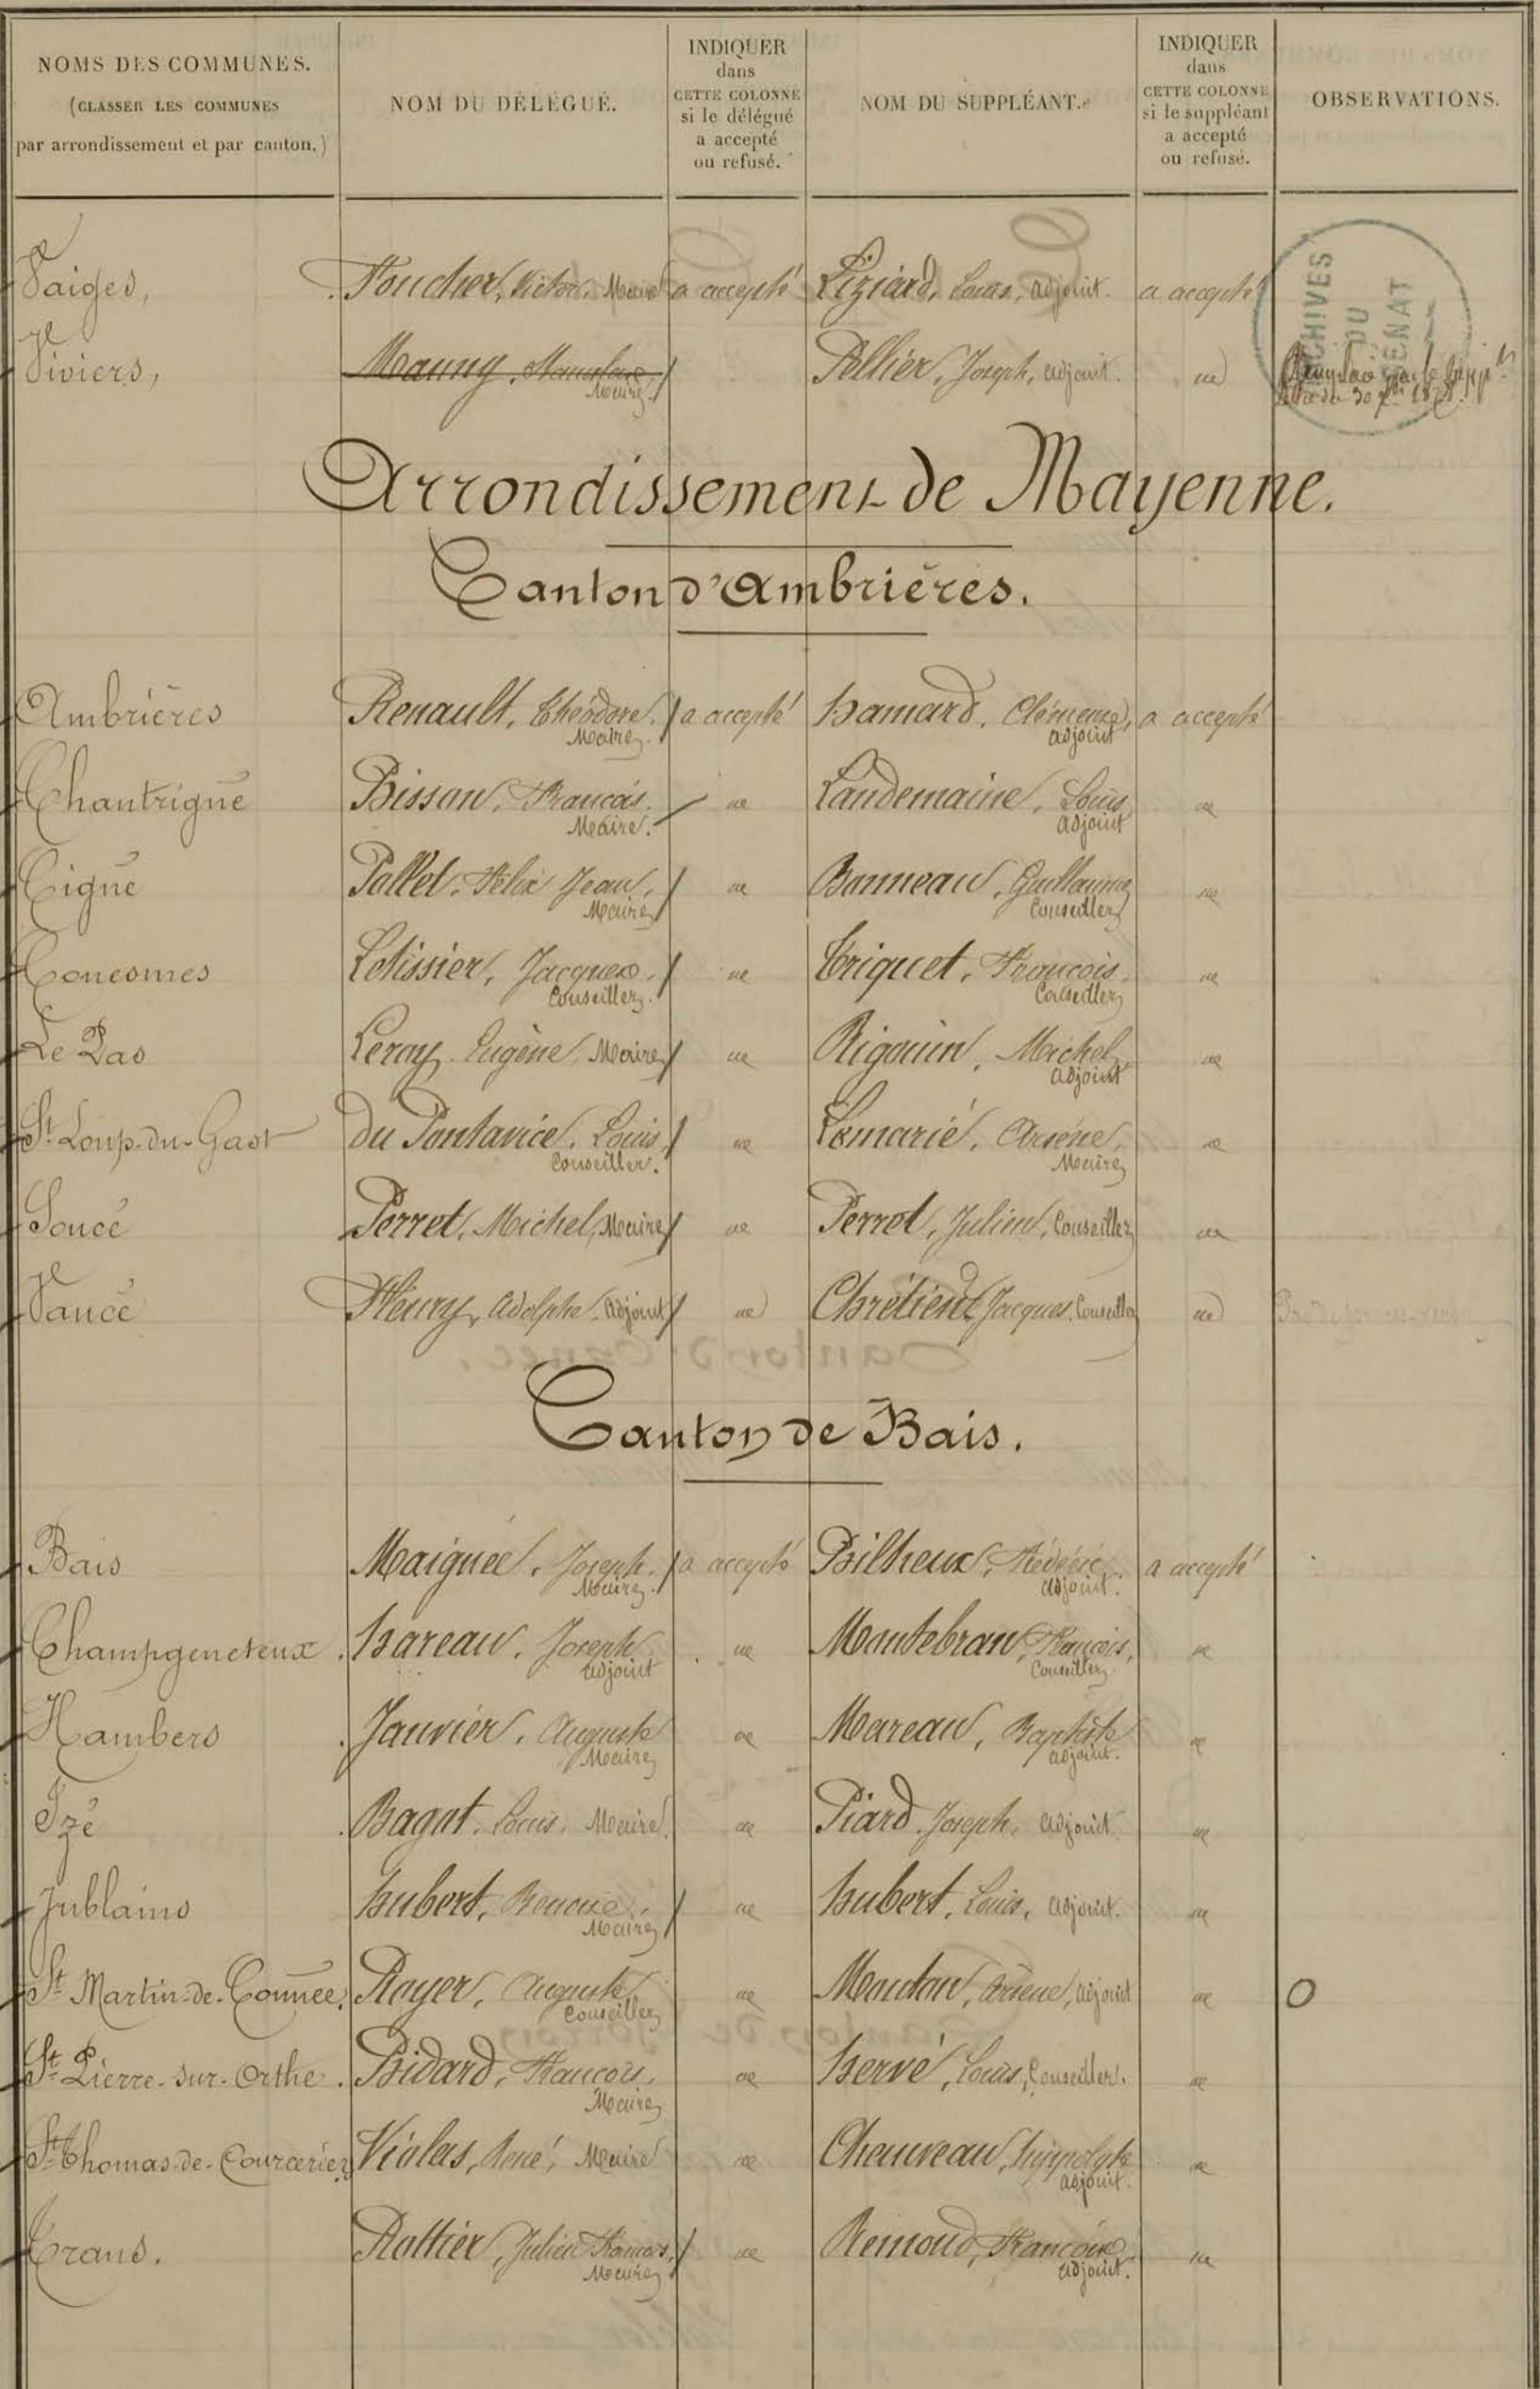 NOMS DES COMMUNES.
(CLASSER LES COMMUNES
par arrondissement et par canton.)
NOM DU DÉLÉGUÉ.
INDIQUER
dans
CETTE COLONNE
si le délégué
a accepté
ou refusé.
NOM DU SUPPLÉANT.
INDIQUER
dans
CETTE COLONNE
si le suppléant
a accepté
ou refusé.
OBSERVATIONS.
ARCHIVES
DU
SENAT
Vaiges, Foucher, Victor, Maire a accepté Liziard, Louis, adjoint. a accepté
Viviers, Mauny, Stanislas, Maire. Pellier, Joseph, adjoint. id Remplacé par le suppt
lettre du 30 Xbre 1878.
Arrondissement de Mayenne.
Canton d'Ambrières.
Ambrières Renault, Théodore, Maire. a accepté Hamard, Clémence, adjoint a accepté
Chantrigné Bisson, François. Maire. id Landemaine, Louis, adjoint id
Cigné Pallet, Félix Jean, Maire id Bonneau, Guillaume, Conseiller id
Couesmes Letissier, Jacques, Conseiller. id Triquet, François, Conseiller id
Le Pas Leroy, Eugène, Maire id Rigouin, Michel, adjoint id
St Loup-du-Gast du Pontavice, Louis, Conseiller. id Lemarié, Arsène, Maire id
Soucé Perret, Michel, Maire id Perrot, Julien, Conseiller id
Vaucé Fleury, Adolphe, adjoint id Chrétien, Jacques, Conseiller id
Canton de Bais.
Bais Maignée, Joseph, Maire. a accepté Bilheux, Frédéric, adjoint. a accepté
Champgeneteux. Hareau, Joseph, adjoint id Montebran, François, Conseiller. id
Hambers Janvier, Auguste Maire id Mareau, Baptiste adjoint. id
Izé Bagot, Louis, Maire. id Piard, Joseph, adjoint. id
Jublains Hubert, Maire id Hubert, Louis, adjoint. id
St Martin-de-Connée. Royer, Auguste, Conseiller id Mouton, Arsène, adjoint id O
St Pierre-sur-Orthe. Bidard, François, Maire id Hervé, Louis, Conseiller. id
St Thomas-de-Courceriers Violas, René, Maire id Chauveau, Hippolyte adjoint. id
Trans. Rottier, Julien François, Maire id Remond, François, adjoint. id